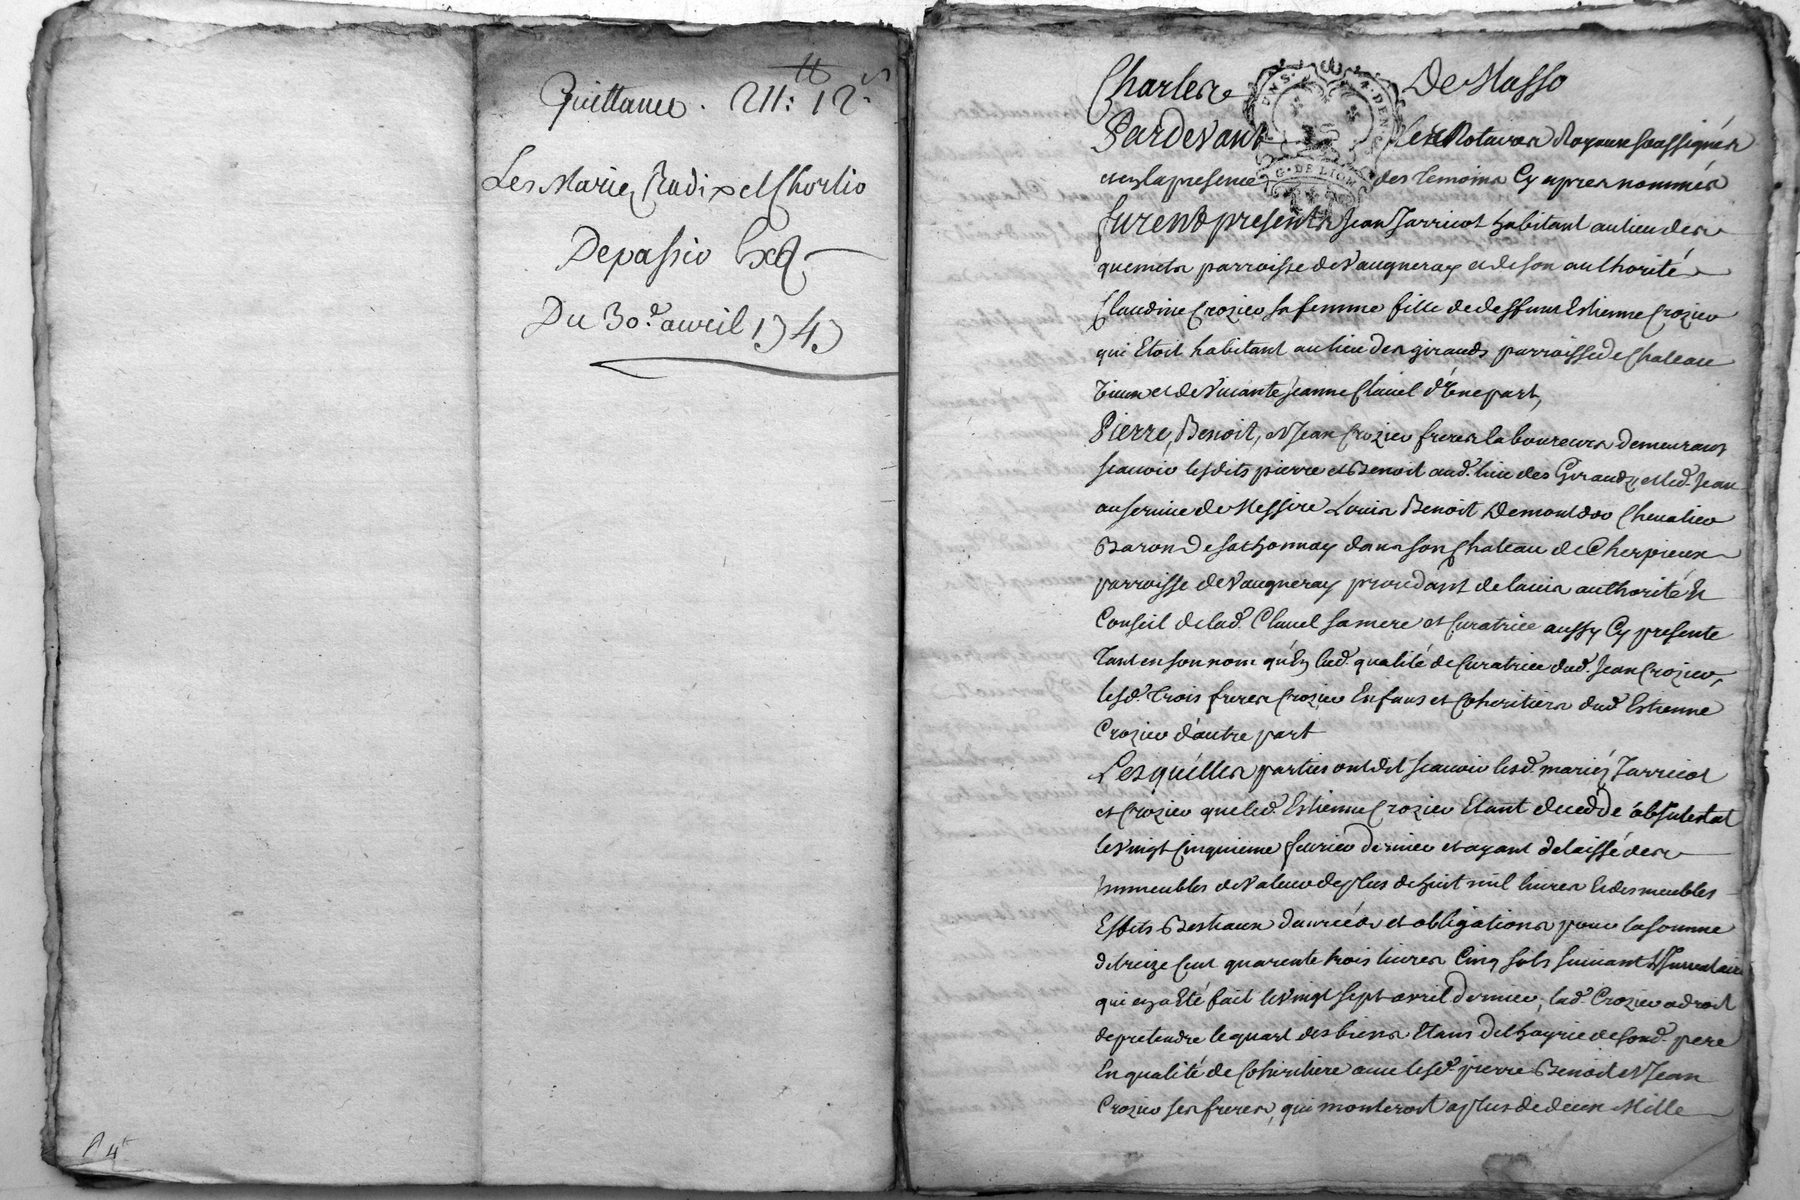 Quittance. 211: 12 s
Les Mariez Rudix et Chorlio
Depassio Exp
Du 30e avril 1747
A 4
Charles De Masso
G. DE LION
Pardevant les Notaires Royaux soussignés
et en la presence des temoins Cy apres nommés
furent presents Jean Jarricot habitant au lieu des
quemets parroisse de Vaugneray et de son authorité
Claudine Crozier sa femme fille de deffunt Estienne Crozier
qui Etoit habitant au lieu des girauds parroisse de Chateau
vieux et de vivante Jeanne Clavel d'Une part,
Pierre, Benoit, et Jean Crozier freres laboureurs demeurans
scavoir lesdits pierre et Benoit aud. lieu des Giraudz et led. Jean
au service de Messire Louis Benoit Demontdor Chevalier
Baron de sathonnay dans son Chateau de Cherpieux
parroisse de Vaugneray procedant de lavis authorité Et
Conseil de lad. Clavel sa mere et Curatrice aussy Cy presente
tant en son nom qu'En lad. qualité de Curatrice dud. Jean Crozier,
lesd. trois freres Crozier Enfans et Coheritiers dud. Estienne
Crozier d'autre part
Lesquelles parties ont dit scavoir lesd. mariez Jarricot
et Crozier que led. Estienne Crozier Etant decedé absintestat
le Vingt Cinquieme fevrier dernier et ayant delaissé des
Immeubles de Valeur de plus de huit mil livres et des meubles
Effets Bestiaux danrées et obligations pour la somme
de treize Cent quarente trois livres Cinq sols suivant L'Inventaire
qui en a Eté fait le Vingt sept avril dernier, lad. Crozier a droit
de pretendre le quart des biens Etans de l'hoyrie de sond. pere
En qualité de Coheritiere avec lesd. pierre Benoit et Jean
Crozier ses freres, qui monteroit a plus de deux Mille